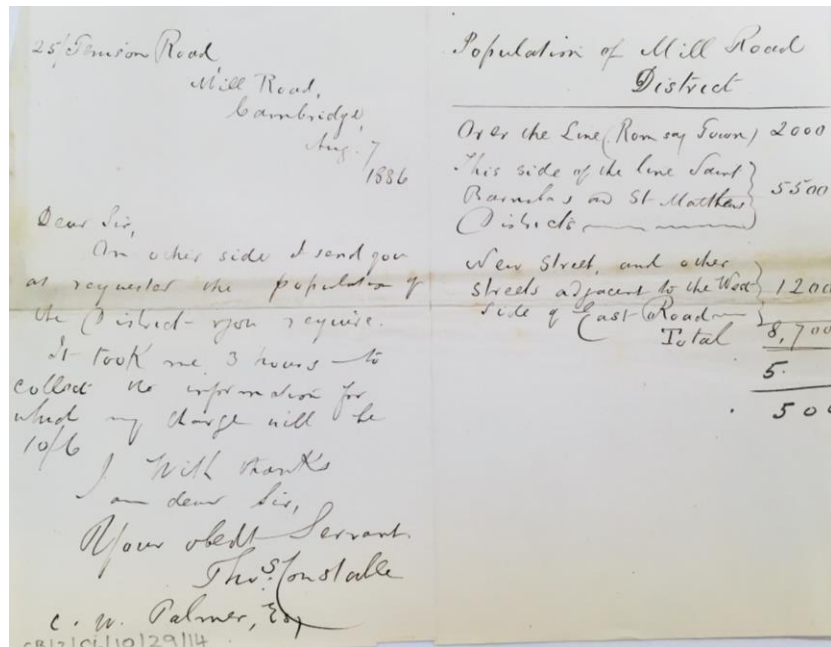 25 Tenison Road,
Mill Road,
Cambridge,
Aug. 7
1886
Dear Sir,
On other side I send you
as requested the population of
the District you require.
It took me 3 hours to
collect the information for
which my charge will be
10/6
With thanks
I am dear Sir,
Your obedt Servant
Thos. Constable
C. W. Palmer, Esq
CB/2/CL/10/29/14
Population of Mill Road
District
Over the Line (Romsey Town) 2000
This side of the line Saint
Barnabas and St Matthews
Districts 5500
New Street, and other
streets adjacent to the West
side of East Road 1200
Total 8,700
5.
500